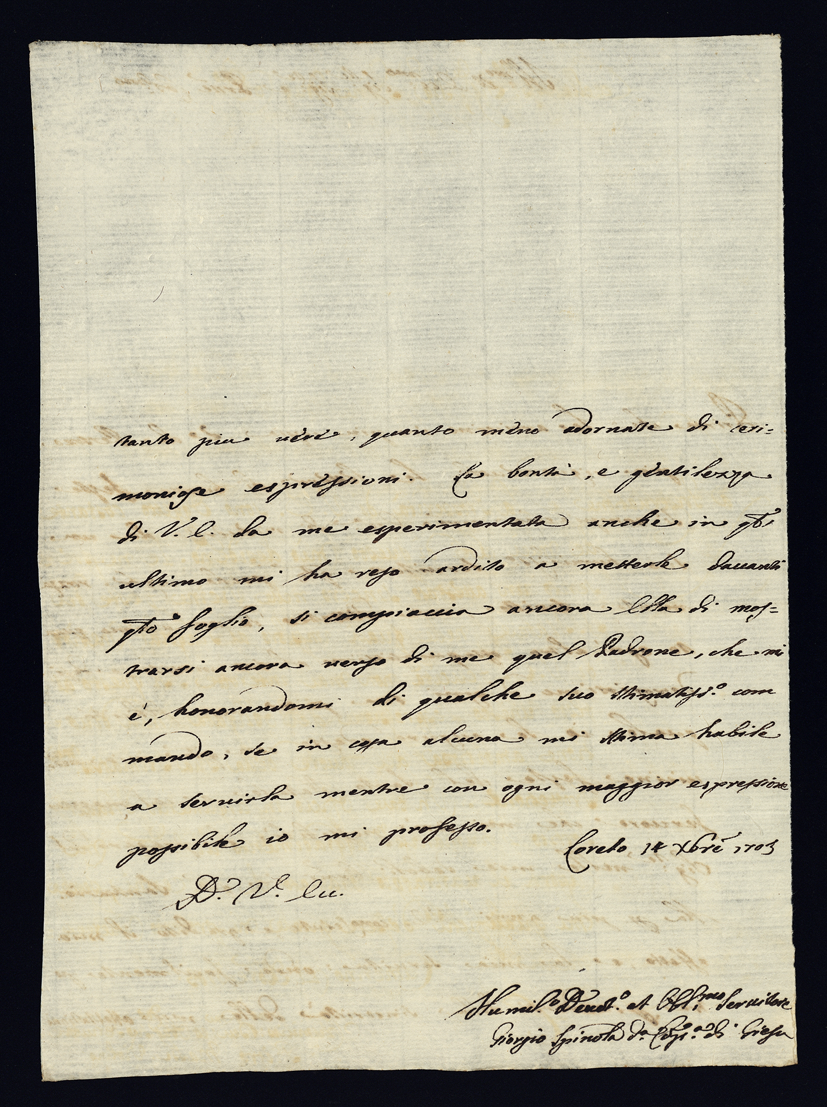 tanto piu vere, quanto meno adornate di ceri=
moniose espressioni. La bontà, e gentilezza
di V. E. da me esperimentata anche in qto
ultimo mi ha reso ardito a metterle davanti
qto foglio, si compiaccia ancora Ella di mos=
trarsi ancora verso di me quel Padrone, che mi
è, honorandomi di qualche suo stimatiss.o com
mando, se in cosa alcuna mi stima habile
a servirla mentre con ogni maggior espressione
possibile io mi professo.
Loreto 14 Xbre 1703
D. V.
Humil.o Devot.o et Obl.mo Servitore
Giorgio Spinola d.a Comp.a di Giesu